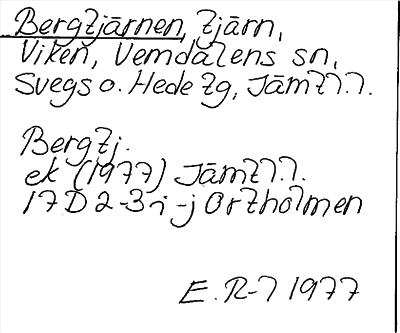 Bergtjärnen, tjärn,
Viken, Vemdalens sn,
Svegs o. Hede tg, Jämtl.
Bergtj.
ek (1977) Jämtl.
17D 2-3 i-j Ortholmen
E. R-l 1977